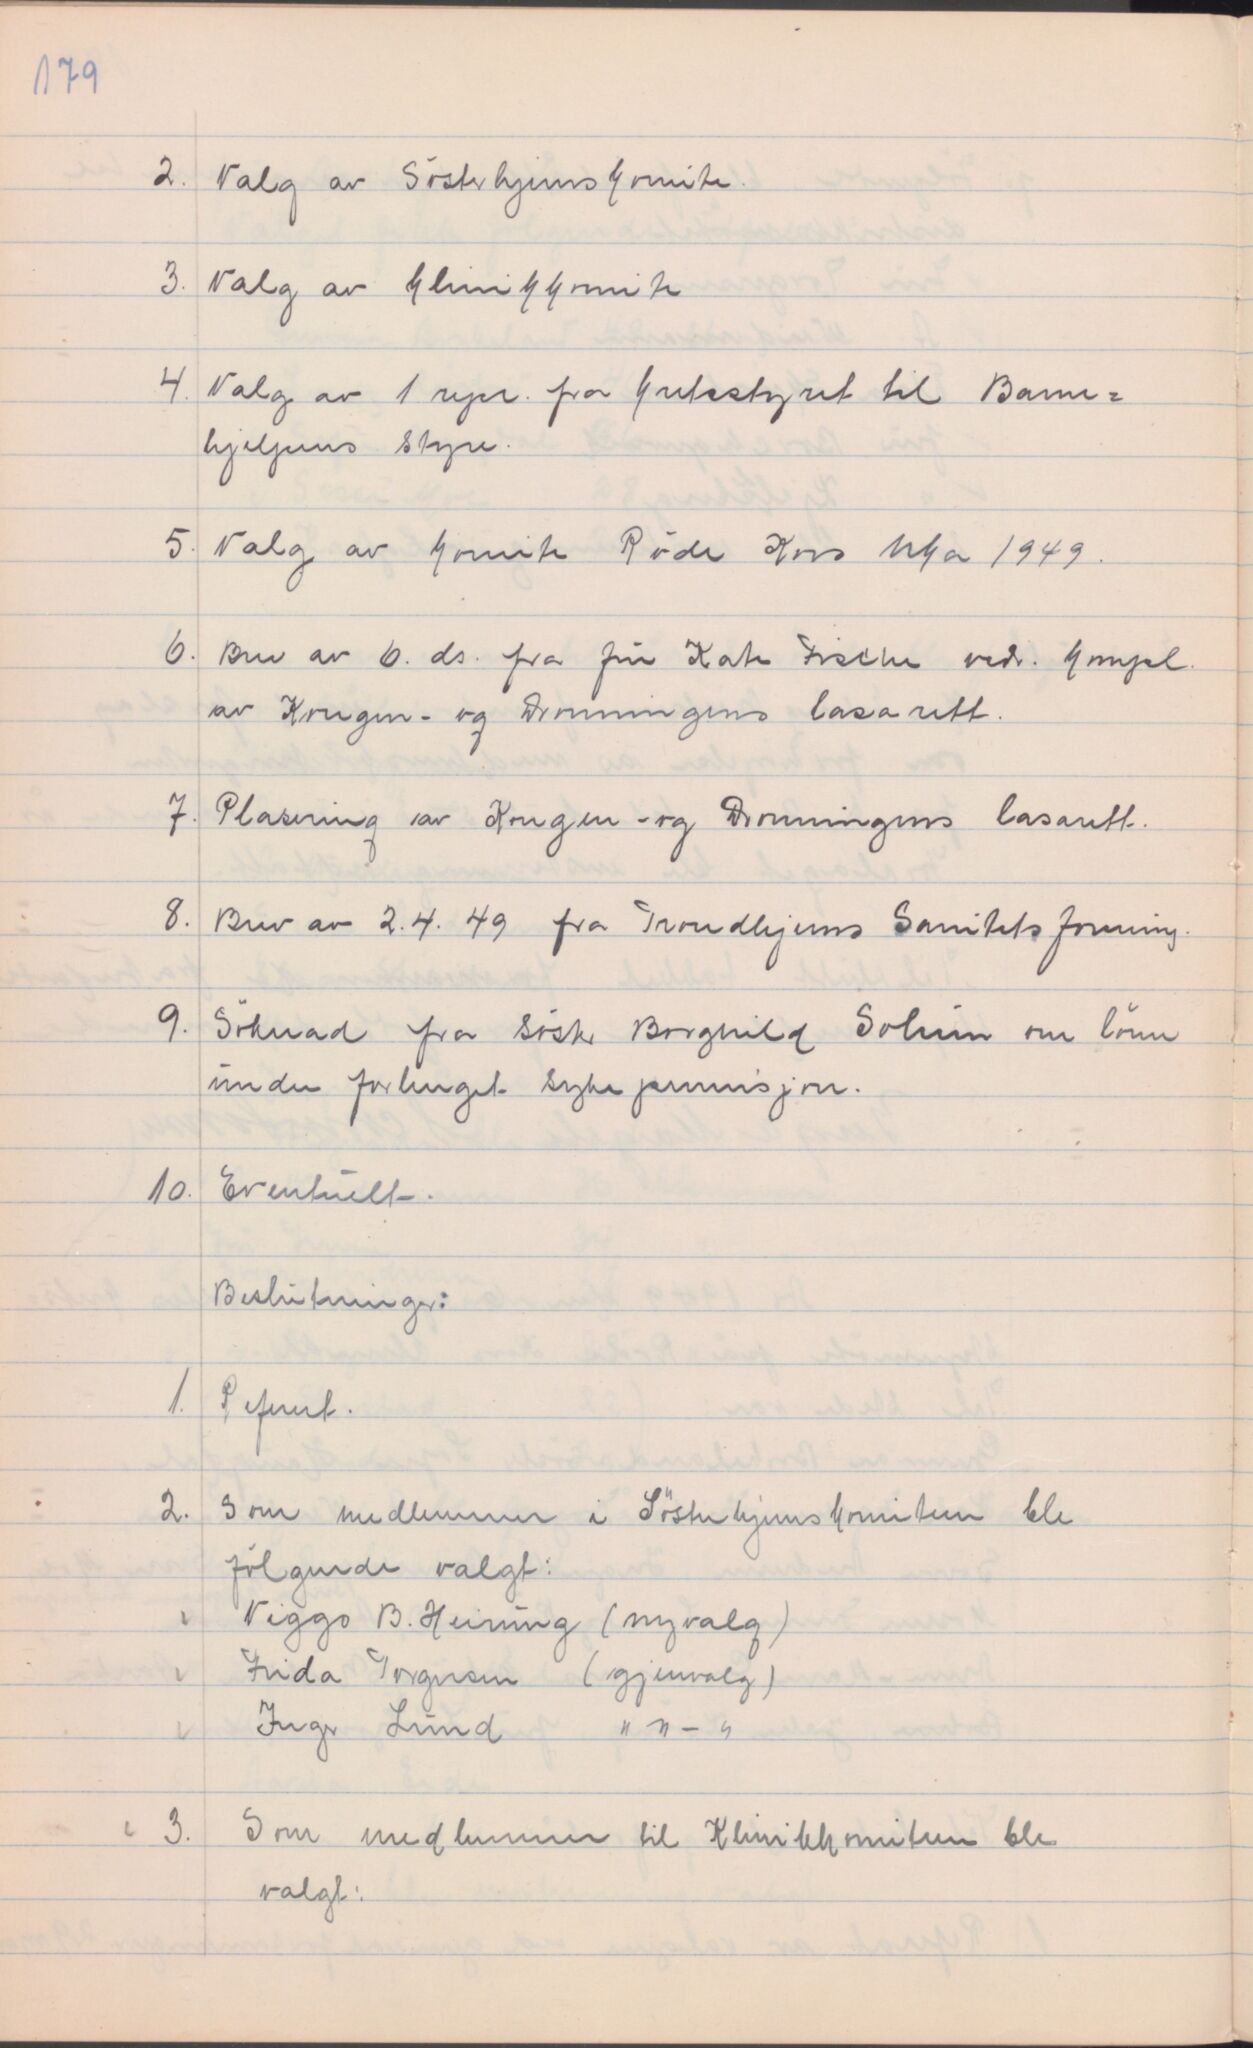 179
2. Valg av Sösterhjemskomite.
3. Valg av klinikkomite
4. Valg av 1 repr. fra kretsstyret til Barne=
hjelpens styre.
5. Valg av komite Röde Kors Uka 1949.
6. Brev av 6. ds. fra frü Kate Fische vedr. kompl.
av Kongen- og Dronningens lasarett.
7. Plasering av Kongen -og Dronningens lasarett.
8. Brev av 2.4.49 fra Trondhjems Sanitetsforening.
9. Söknad fra söster Borghild Solum om lönn
ünder forlenget sykepermisjon.
10. Eventüelt.
Beslütninger:
1. Referert.
2. Som medlemmer i Sösterhjemskomiteen ble
fölgende valgt:
Viggo B. Heiring (nyvalg)
Frida Torgersen (gjenvalg)
Inger Lünd " " - "
3. Som medlemmer til Klinikkomiteen ble
valgt: